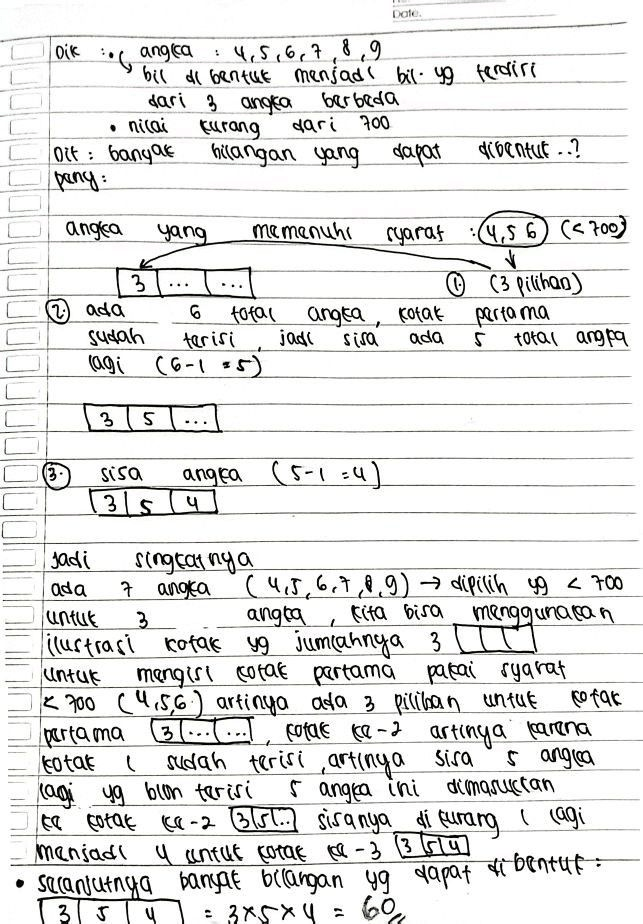 Date.
Dik : • angka : 4, 5, 6, 7, 8, 9
bil di bentuk menjadi bil. yg terdiri
dari 3 angka berbeda
• nilai kurang dari 700
Dit : banyak bilangan yang dapat dibentuk ..?
peny :
angka yang memenuhi syarat : 4, 5 6 (< 700)
3 ... ... ① (3 pilihan)
② ada 6 total angka, kotak pertama
sudah terisi, jadi sisa ada 5 total angka
lagi (6-1 = 5)
3 5 ...
③ sisa angka (5-1 = 4)
3 5 4
Jadi singkatnya
ada 7 angka (4, 5, 6, 7, 8, 9) → dipilih yg < 700
untuk 3 angka, kita bisa menggunakan
ilustrasi kotak yg jumlahnya 3
untuk mengisi kotak pertama pakai syarat
< 700 (4, 5, 6.) artinya ada 3 pilihan untuk kotak
pertama 3 ... ..., kotak ke-2 artinya karena
kotak 1 sudah terisi, artinya sisa 5 angka
lagi yg blom terisi 5 angka ini dimasukkan
ke kotak ke-2 3 5 .. sisanya di kurang 1 lagi
menjadi 4 untuk kotak ke-3 3 5 4
• selanjutnya banyak bilangan yg dapat di bentuk :
3 5 4 = 3 x 5 x 4 = 60